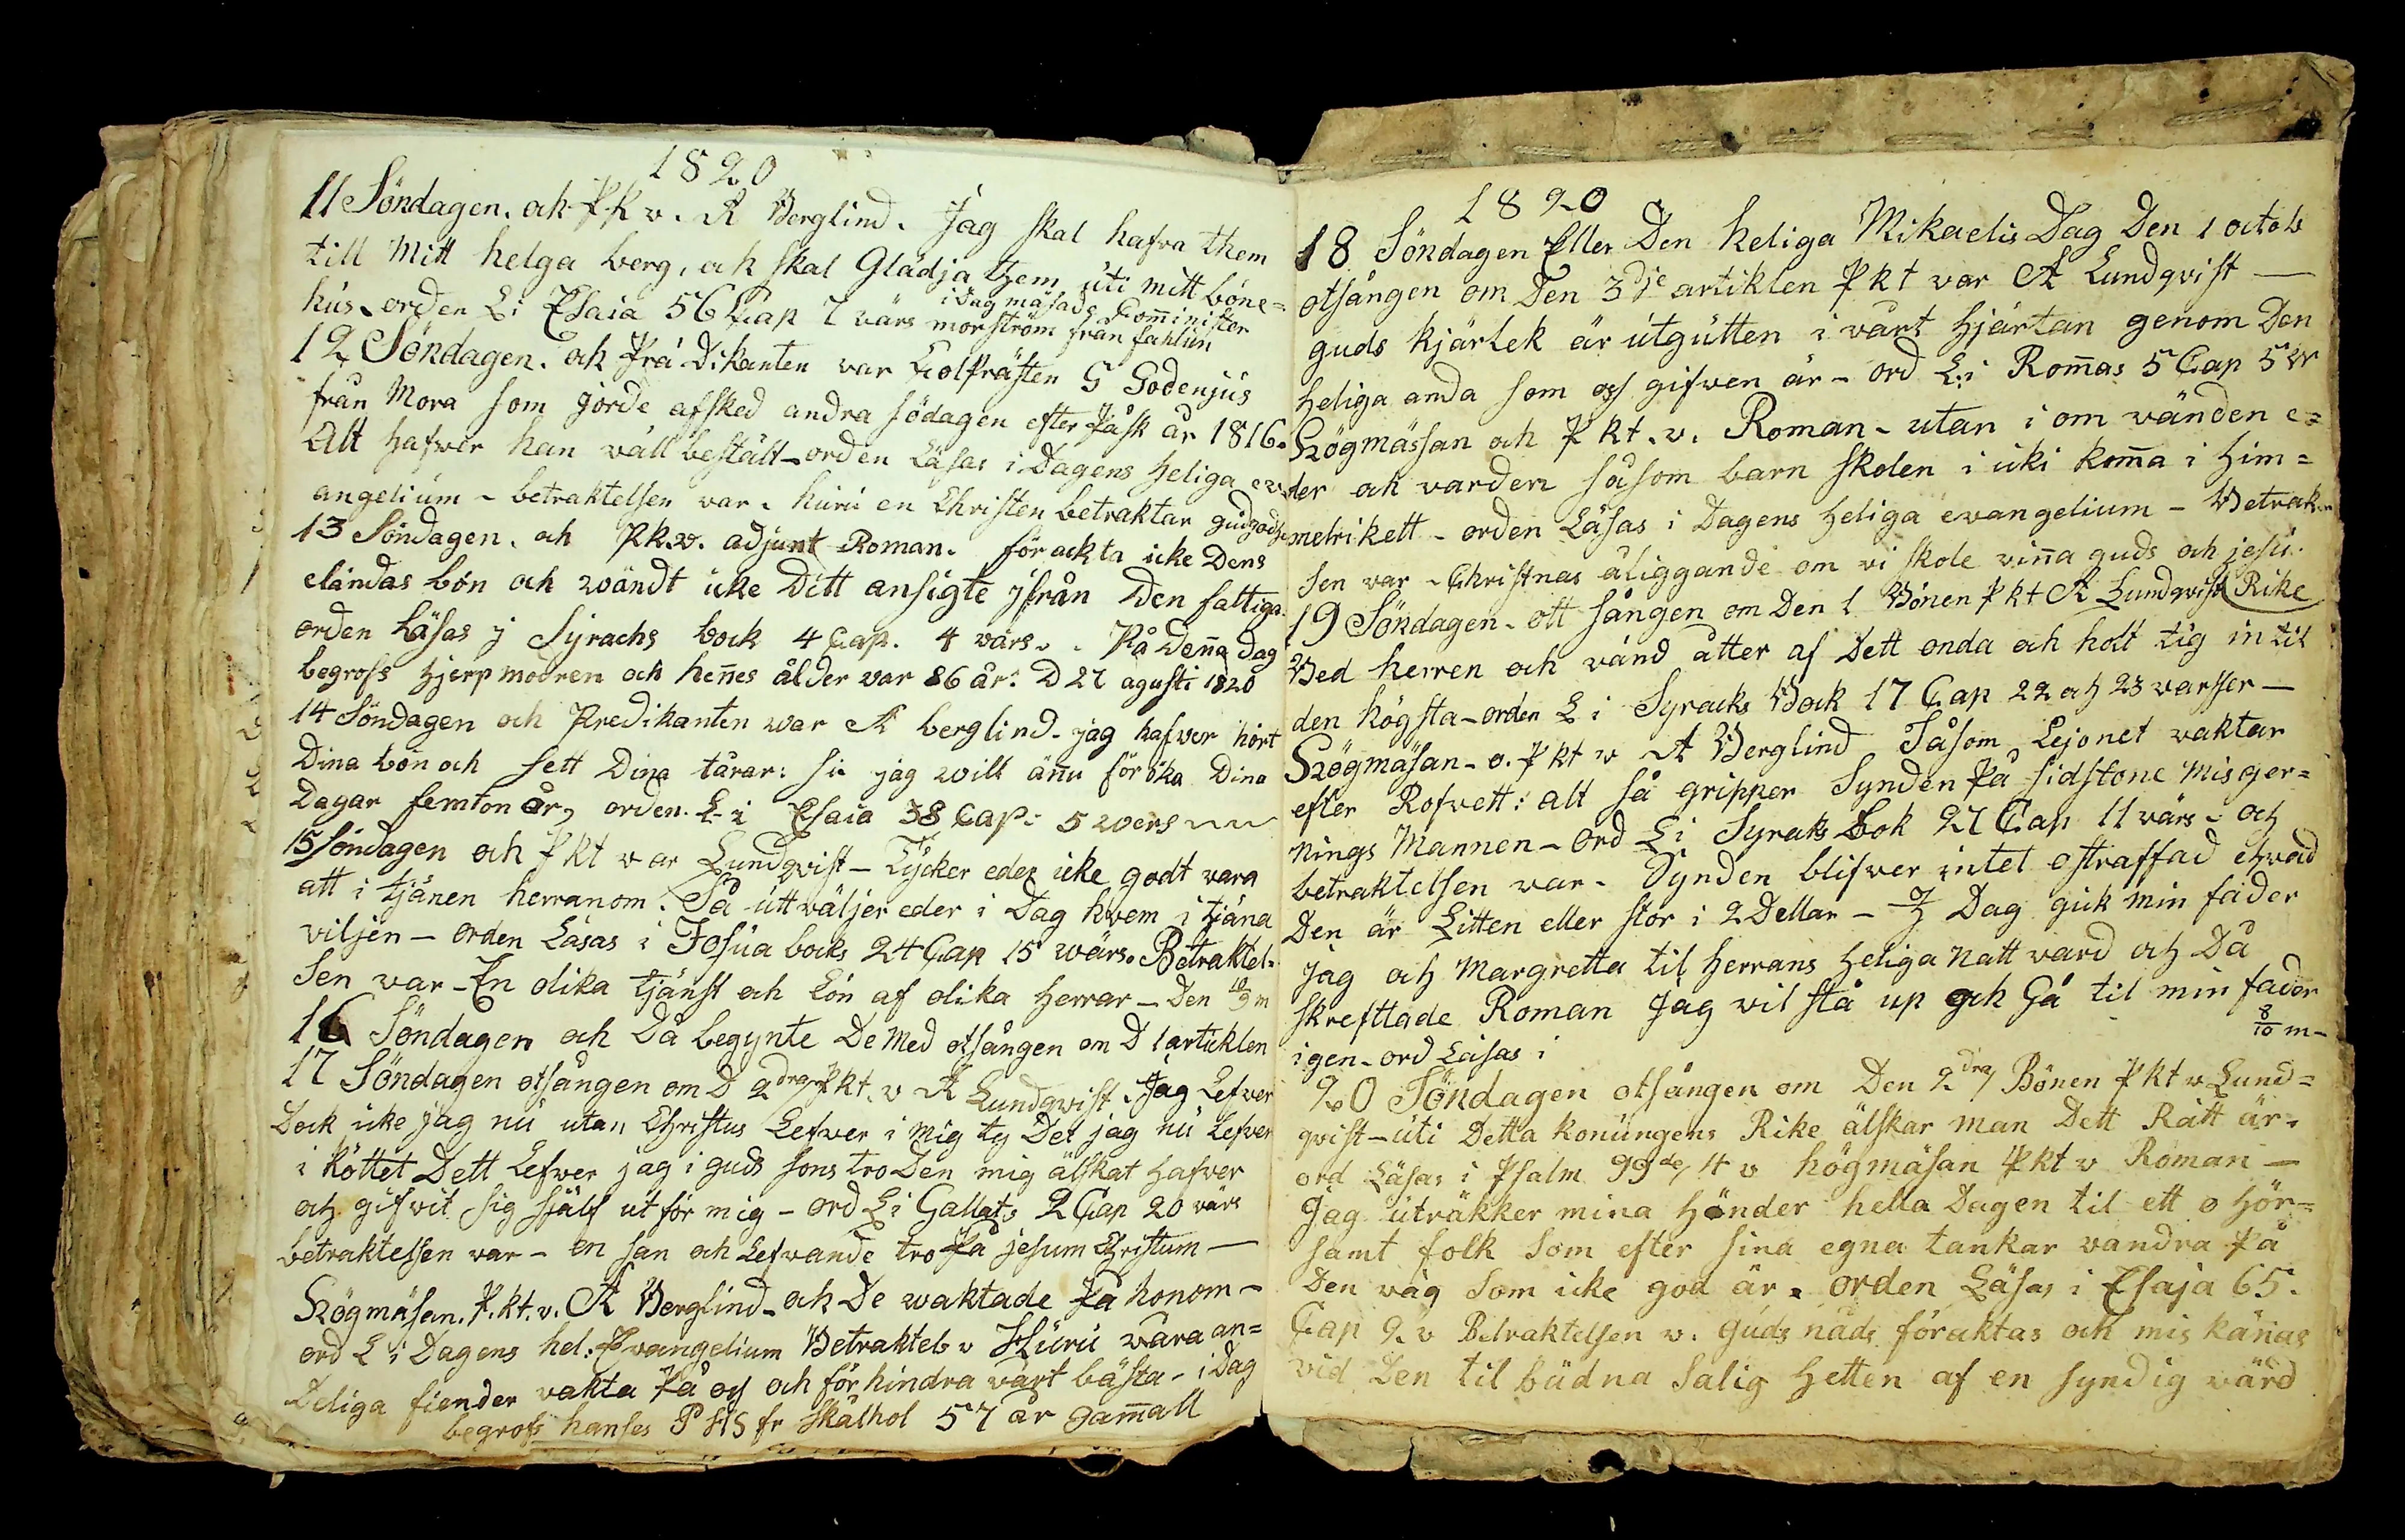 1820
11 Söndagen. ock Pk v. A Berglind. Jag skal hafva them
till Mitt helga berg, ock skal Glädja them uti mitt böne=
hus. orden L i Esaia 56 Cap 7 värs
i dag mäsade Com̄inister
morström från fahlun
12 Söndagen. ock Prädikanten var Colprästen G Godenjus
från Mora som gjorde afsked andra södagen efter Påsk år 1816.
Alt hafwer han väll bestält - orden Läsas i Dagens heliga ev
angelium - betraktelsen var. huru en Christen betraktar gudz
13 Söndagen. ock Pk.v. adjunt Roman. förackta icke Dens
eländas bön och wändt icke Ditt ansigte jfrån Den fattiga.
orden Läsas j Syrachs bock 4 Cap. 4 värs.. På Den̄a Dag
begrofs Hjerpmodren och hen̄es ålder var 86 år: D 27 agusti 1820
14 Söndagen och Predikanten war A berglind. jag hafver hört
Dina bön och sett Dina tårar: si jag will än̄u föröka Dina
Dagar femton år, orden. L i Esaia 38 Cap: 5 wers
15 Söndagen och Pkt war Lundqvist - Tycker eder icke godt vara
att i tjänen herranom. Så utt väljer eder i Dag hvem i tjäna
viljen - orden Läsas i Josua bocks 24 Cap 15 wärs. Betraktel=
sen var - En olika tjänst och Lön af olika herrar - Den 10/9 m
16 Söndagen och Då begynte De Med otsången om D 1 artiklen
17 Söndagen otsången om D 2dra Pkt. v A Lundqvist. Jag Lefver
Dock icke jag nu utan Christus Lefver i mig ty Det jag nu Lefver
i köttet Dett Lefwer jag i guds sons tro Den mig älskat hafver
och gifvit sig sjelf ut för mig - ord L i Gallats 2 Cap 20 värs
betraktelsen var - en san och Lefvande tro På jesum Christum -
Högmäsan. P.kt. v. A Berglind - ock De waktade På honom -
ord L i Dagens hel. Evangelium Betraktels v Huru våra an=
Deliga fiender vakta På oss och för hindra vårt bästa - i Dag
begrofs hanses P HS fr skålhol 57 år gam̄all
1820
18 Söndagen Eller Den heliga Mikaelis Dag Den 1 octob
otsången om Den 3dje artiklen Pkt var A Lundqvist -
guds kjärlek är utgutten i vårt hjärtan genom Den
heliga anda som oss gifven är - ord L:i Rom̄as 5 Cap 5 W
Högmässan och P kt. v. Roman - utan i om vänden e=
der ock varden såsom barn skolen i icki kom̄a i Him=
melrikett - orden Läsas i Dagens heliga evangelium - Betrak=
sen var - Christnas åliggande om vi skole vin̄a guds och jesu.
Rike
19 Söndagen - ott sången om Den 1 Bönen Pkt A Lundqvist
Bed herren och vänd åtter af Dett onda och holt tig in til
den högsta - orden L i Syracks Bock 17 Cap 22 och 23 varsser -
Högmäsan - o. Pkt v A Berglind Såsom Lejonet vaktar
efter Rofvett: alt så gripper Synden På sidstone Misger=
nings Mannen - ord L i Syraks Bok 27 Cap 11 värs - och
betraktelsen var - Synden blifver intet ostraffad ehvad
Den är Litten eller stor i 2 Dellar - I Dag gick min fader
jag och Margretta til herrans heliga natt vard och Då
skrefttade Roman Jag vil stå up och Gå til min fader
igen - ord Läsas i
8/10 m -
20 Söndagen otsången om Den 2dra Bönen Pkt v Lund=
qvist - uti Detta konungens Rike älskar Man Dett Rätt är -
ord Läsas i Psalm 99de, 4 v högmäsan Pkt v Roman -
Jag uträkker mina Hönder hella Dagen til ett o hör=
samt folk som efter sina egna tankar vandra På
Den wäg som icke god är. orden Läsas i Esaja 65.
Cap 2 v Betraktelsen v. guds nåds föraktas och mis känas
vid Den til budna Salig hetten af en syndig värd